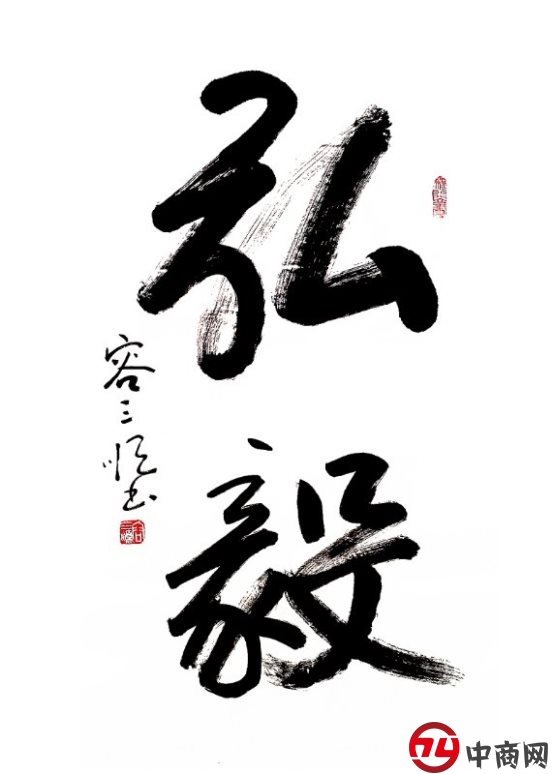 弘毅
容三恒书
中商网